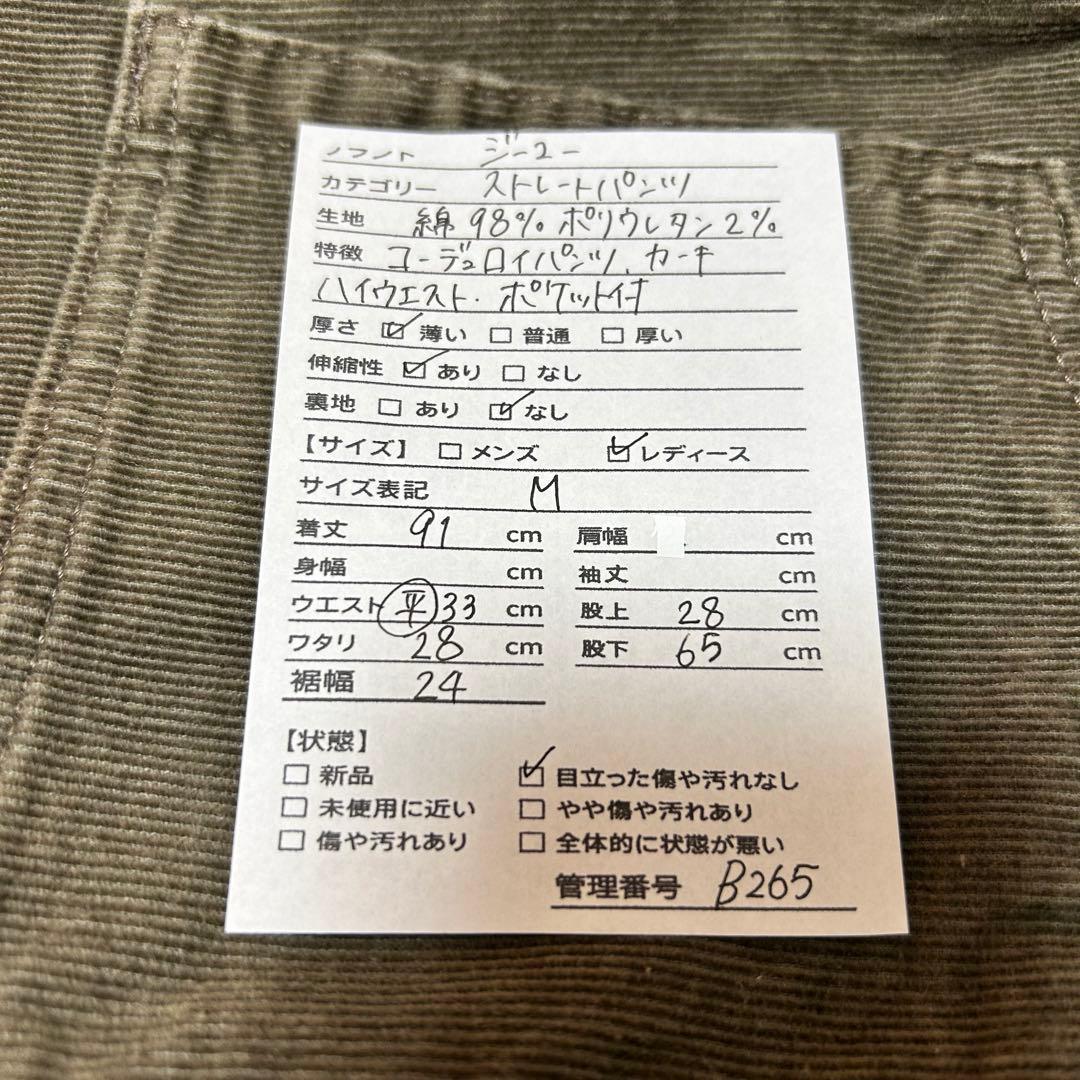 ブランド ジーユー
カテゴリー ストレートパンツ
生地 綿98% ポリウレタン2%
特徴 コーデュロイパンツ、カーキ
ハイウエスト、ポケット付
厚さ ☑薄い □普通 □厚い
伸縮性 ☑あり □なし
裏地 □あり ☑なし
【サイズ】 □メンズ ☑レディース
サイズ表記 M
着丈 91 cm 肩幅 cm
身幅 cm 袖丈 cm
ウエスト 平 33 cm 股上 28 cm
ワタリ 28 cm 股下 65 cm
裾幅 24
【状態】
□新品 ☑目立った傷や汚れなし
□未使用に近い □やや傷や汚れあり
□傷や汚れあり □全体的に状態が悪い
管理番号 B265